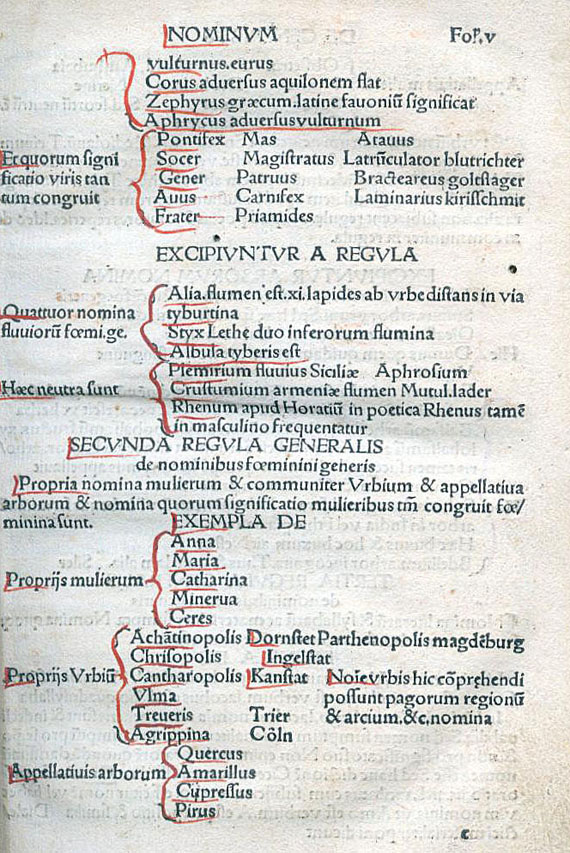 NOMINVM Fol̃.v
vulturnus.eurus
Corus aduerſus aquilonem flat
Zephyrus græcum.latine fauoniũ ſignificat
Aphrycus aduerſusvulturnum
Pontifex Mas Atauus
Et quorum ſigni Socer Magiſtratus Latrũculator blutrichter
ficatio viris tan Gener Patruus Bracteareus goltſlager
tum congruit Auus Carnifex Laminarius kiriſſchmit
Frater Priamides
EXCIPIVNTVR A REGVLA
Alia.flumen eſt.xi.lapides ab vrbe diſtans in via
Quattuor nomina tyburtina
fluuiorũ fœmi.ge. Styx Lethe duo inferorum flumina
Albula tyberis eſt
Plemirium fluuius Siciliæ Aphroſium
Hæc neutra ſunt Cruſtumium armeniæ flumen Mutul.Iader
Rhenum apud Horatiũ in poetica Rhenus tamẽ
in maſculino frequentatur
SECVNDA REGVLA GENERALIS
de nominibus fœminini generis
Propria nomina mulierum & communiter Vrbium & appellatiua
arborum & nomina quorum ſignificatio mulieribus tm̃ congruit fœ/
minina ſunt. EXEMPLA DE
Anna
Maria
Proprijs mulierum Catharina
Minerua
Ceres
Achãtinopolis Dornſtet Parthenopolis magdẽburg
Chriſopolis Ingelſtat
Proprijs Vrbiũ Cantharopolis Kanſtat Noĩe vrbis hic cõprehendi
Vlma poſſunt pagorum regionũ
Treueris Trier & arcium.&c.nomina
Agrippina Cöln
Quercus
Appellatiuis arborum Amarillus
Cupreſſus
Pirus
c